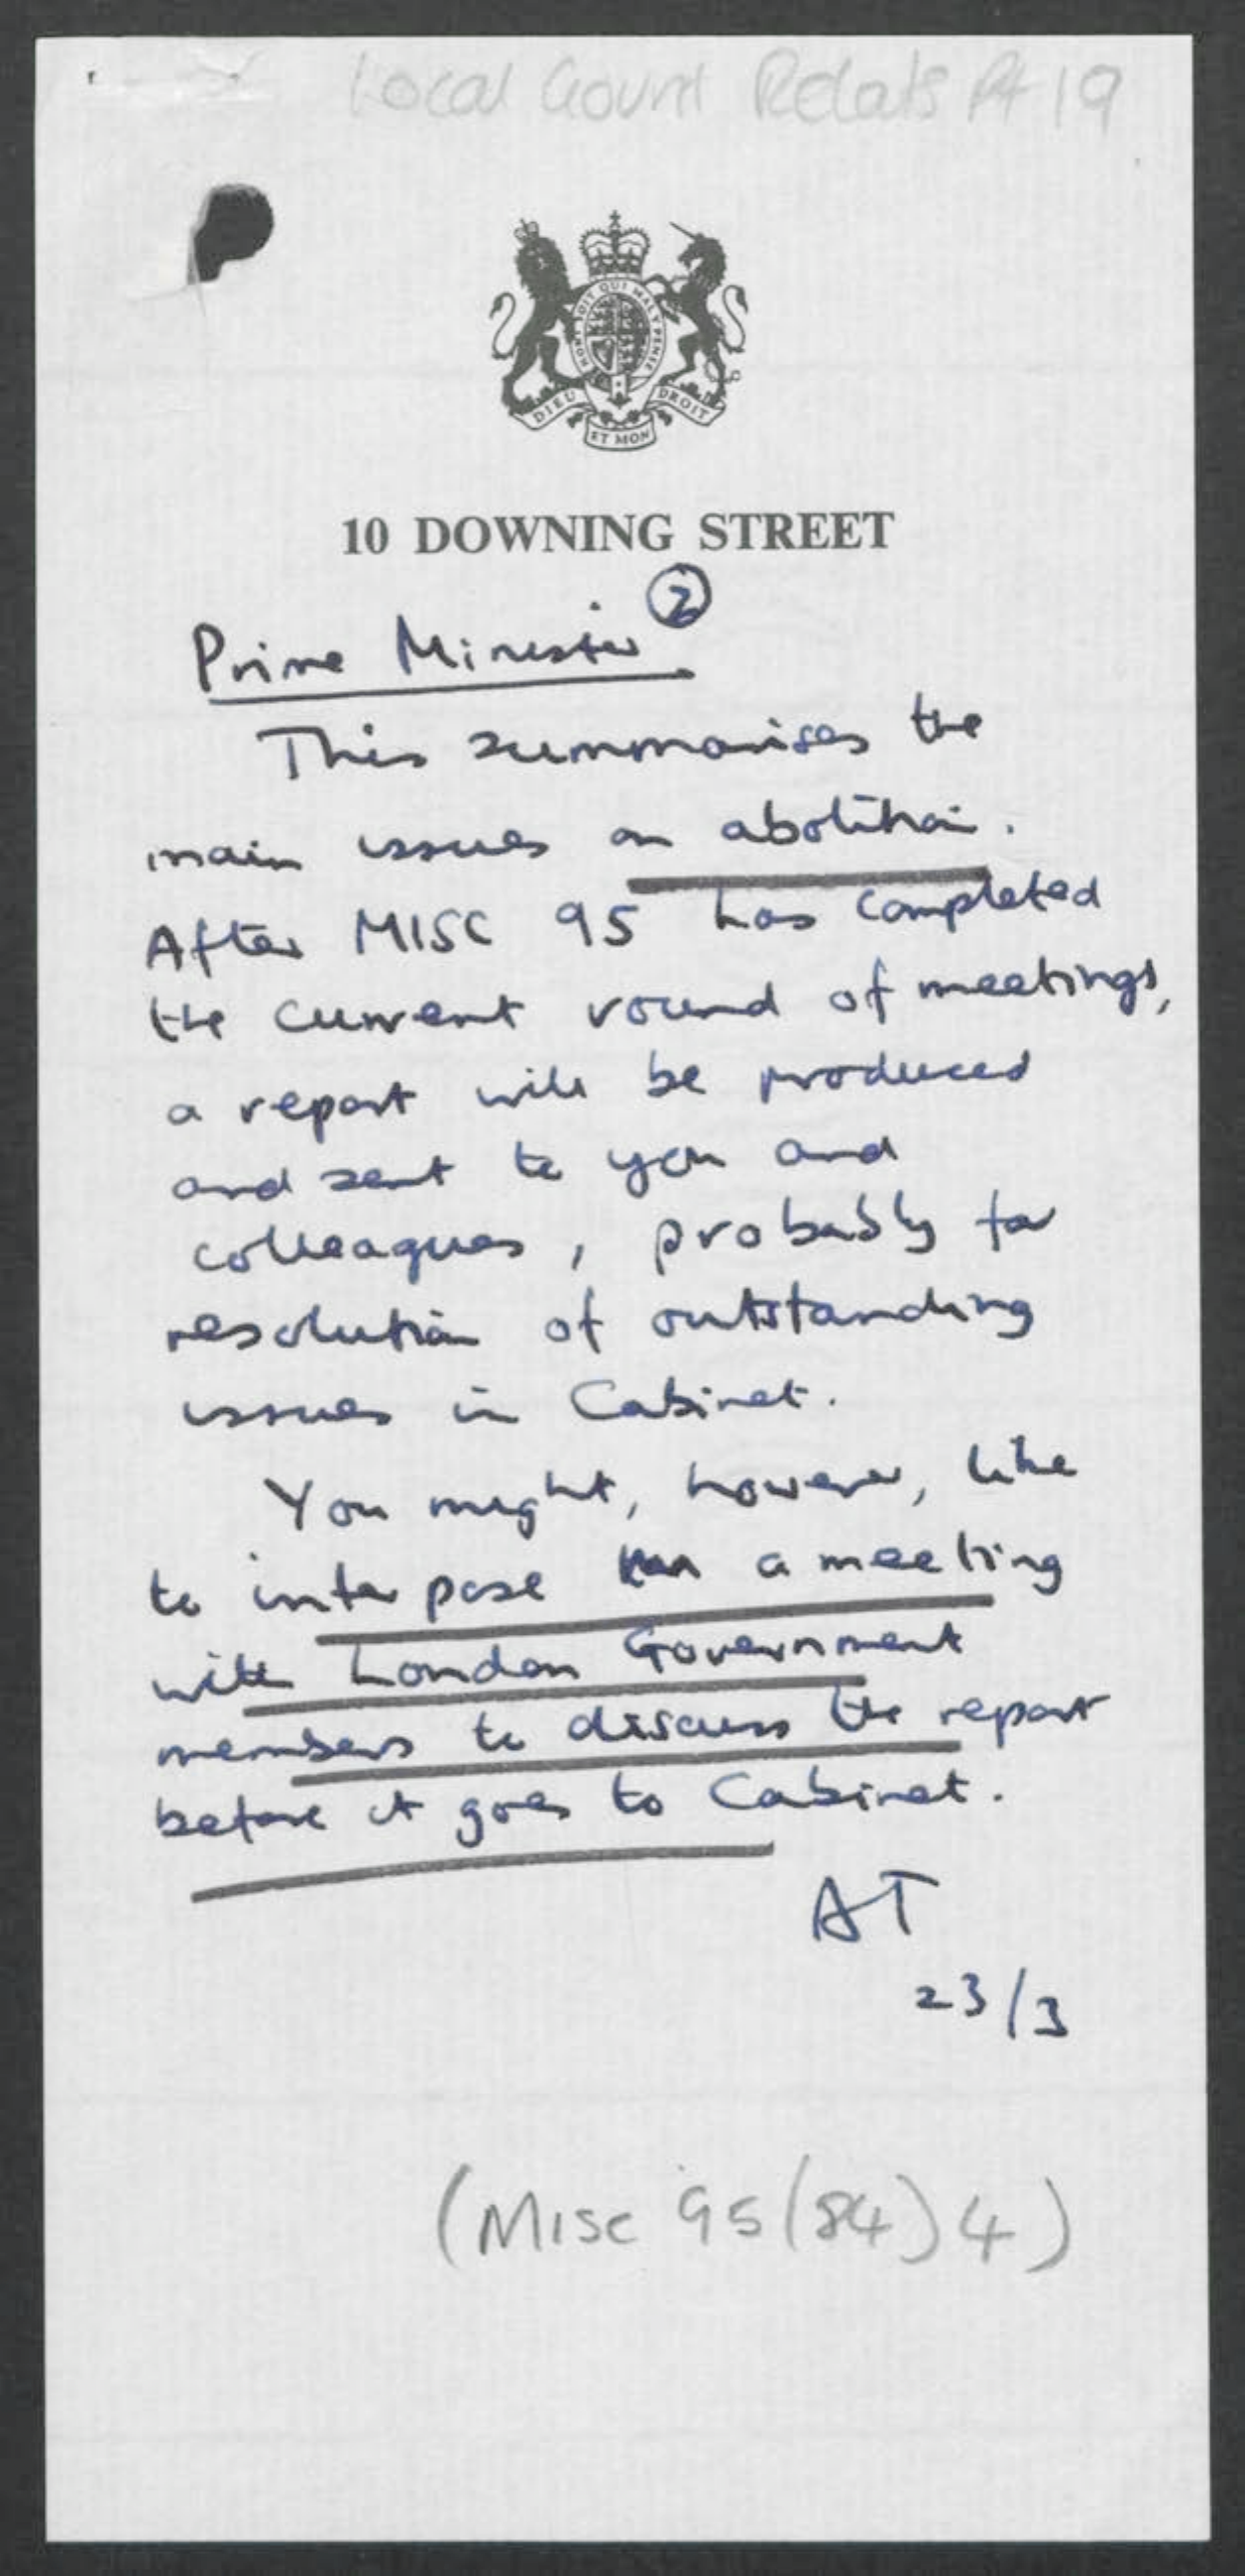 Local Govmt Relats Pt 19
HONI SOIT QUI MAL Y PENSE
DIEU ET MON DROIT
10 DOWNING STREET
Prime Minister ②
This summarises the
main issues on abolition.
After MISC 95 has completed
the current round of meetings,
a report will be produced
and sent to you and
colleagues, probably for
resolution of outstanding
issues in Cabinet.
You might, however, like
to interpose a meeting
with London Government
members to discuss the report
before it goes to Cabinet.
AT
23/3
(Misc 95(84)4)